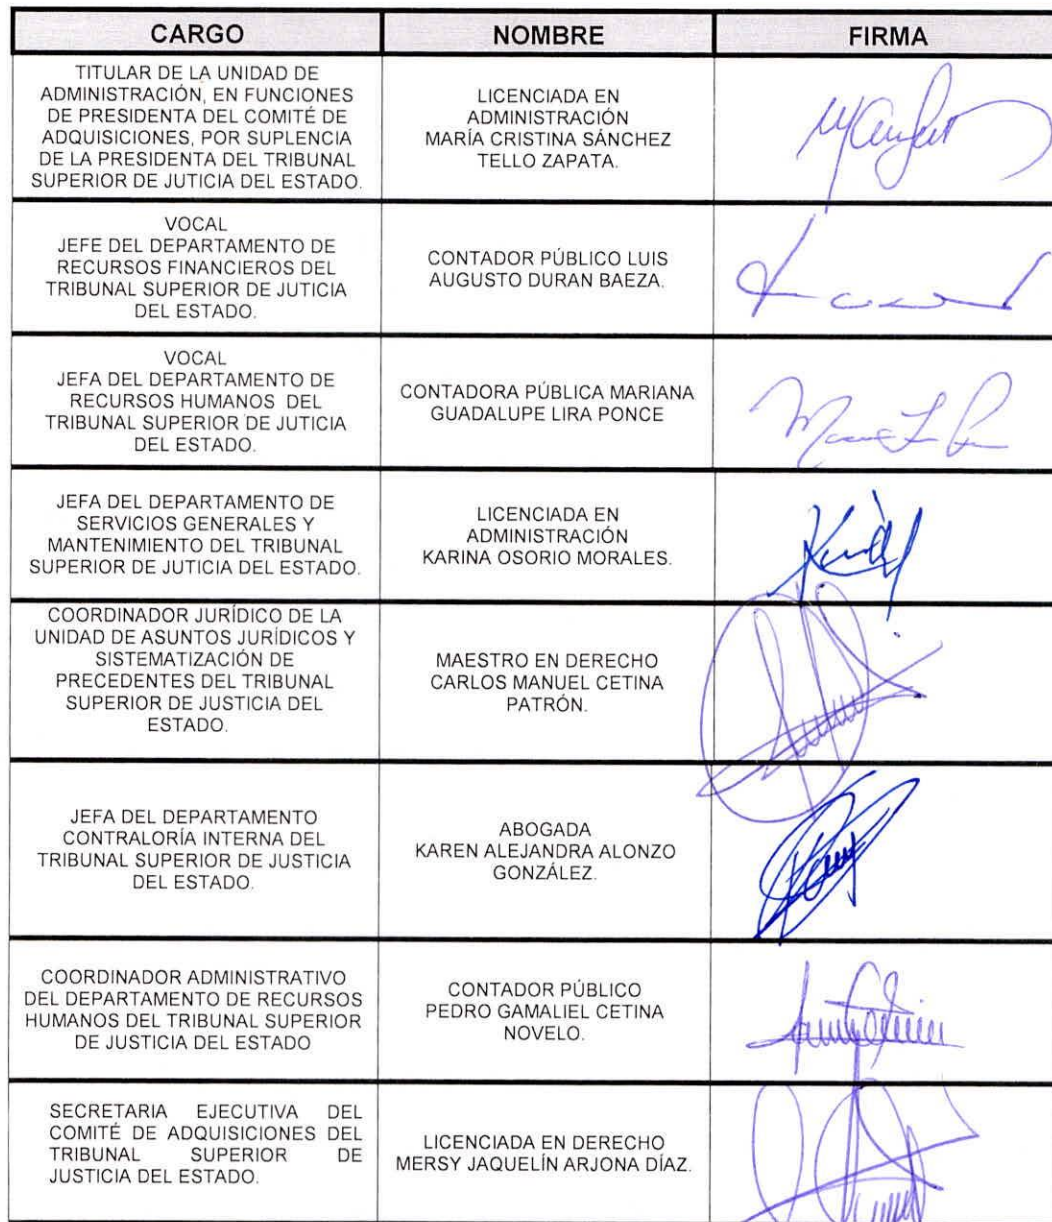 CARGO NOMBRE FIRMA
TITULAR DE LA UNIDAD DE
ADMINISTRACIÓN, EN FUNCIONES
DE PRESIDENTA DEL COMITÉ DE
ADQUISICIONES, POR SUPLENCIA
DE LA PRESIDENTA DEL TRIBUNAL
SUPERIOR DE JUTICIA DEL ESTADO.
LICENCIADA EN
ADMINISTRACIÓN
MARÍA CRISTINA SÁNCHEZ
TELLO ZAPATA.
VOCAL
JEFE DEL DEPARTAMENTO DE
RECURSOS FINANCIEROS DEL
TRIBUNAL SUPERIOR DE JUTICIA
DEL ESTADO.
CONTADOR PÚBLICO LUIS
AUGUSTO DURAN BAEZA.
VOCAL
JEFA DEL DEPARTAMENTO DE
RECURSOS HUMANOS DEL
TRIBUNAL SUPERIOR DE JUTICIA
DEL ESTADO.
CONTADORA PÚBLICA MARIANA
GUADALUPE LIRA PONCE
JEFA DEL DEPARTAMENTO DE
SERVICIOS GENERALES Y
MANTENIMIENTO DEL TRIBUNAL
SUPERIOR DE JUTICIA DEL ESTADO.
LICENCIADA EN
ADMINISTRACIÓN
KARINA OSORIO MORALES.
COORDINADOR JURÍDICO DE LA
UNIDAD DE ASUNTOS JURÍDICOS Y
SISTEMATIZACIÓN DE
PRECEDENTES DEL TRIBUNAL
SUPERIOR DE JUSTICIA DEL
ESTADO.
MAESTRO EN DERECHO
CARLOS MANUEL CETINA
PATRÓN.
JEFA DEL DEPARTAMENTO
CONTRALORÍA INTERNA DEL
TRIBUNAL SUPERIOR DE JUSTICIA
DEL ESTADO.
ABOGADA
KAREN ALEJANDRA ALONZO
GONZÁLEZ.
COORDINADOR ADMINISTRATIVO
DEL DEPARTAMENTO DE RECURSOS
HUMANOS DEL TRIBUNAL SUPERIOR
DE JUSTICIA DEL ESTADO
CONTADOR PÚBLICO
PEDRO GAMALIEL CETINA
NOVELO.
SECRETARIA EJECUTIVA DEL
COMITÉ DE ADQUISICIONES DEL
TRIBUNAL SUPERIOR DE
JUSTICIA DEL ESTADO.
LICENCIADA EN DERECHO
MERSY JAQUELÍN ARJONA DÍAZ.